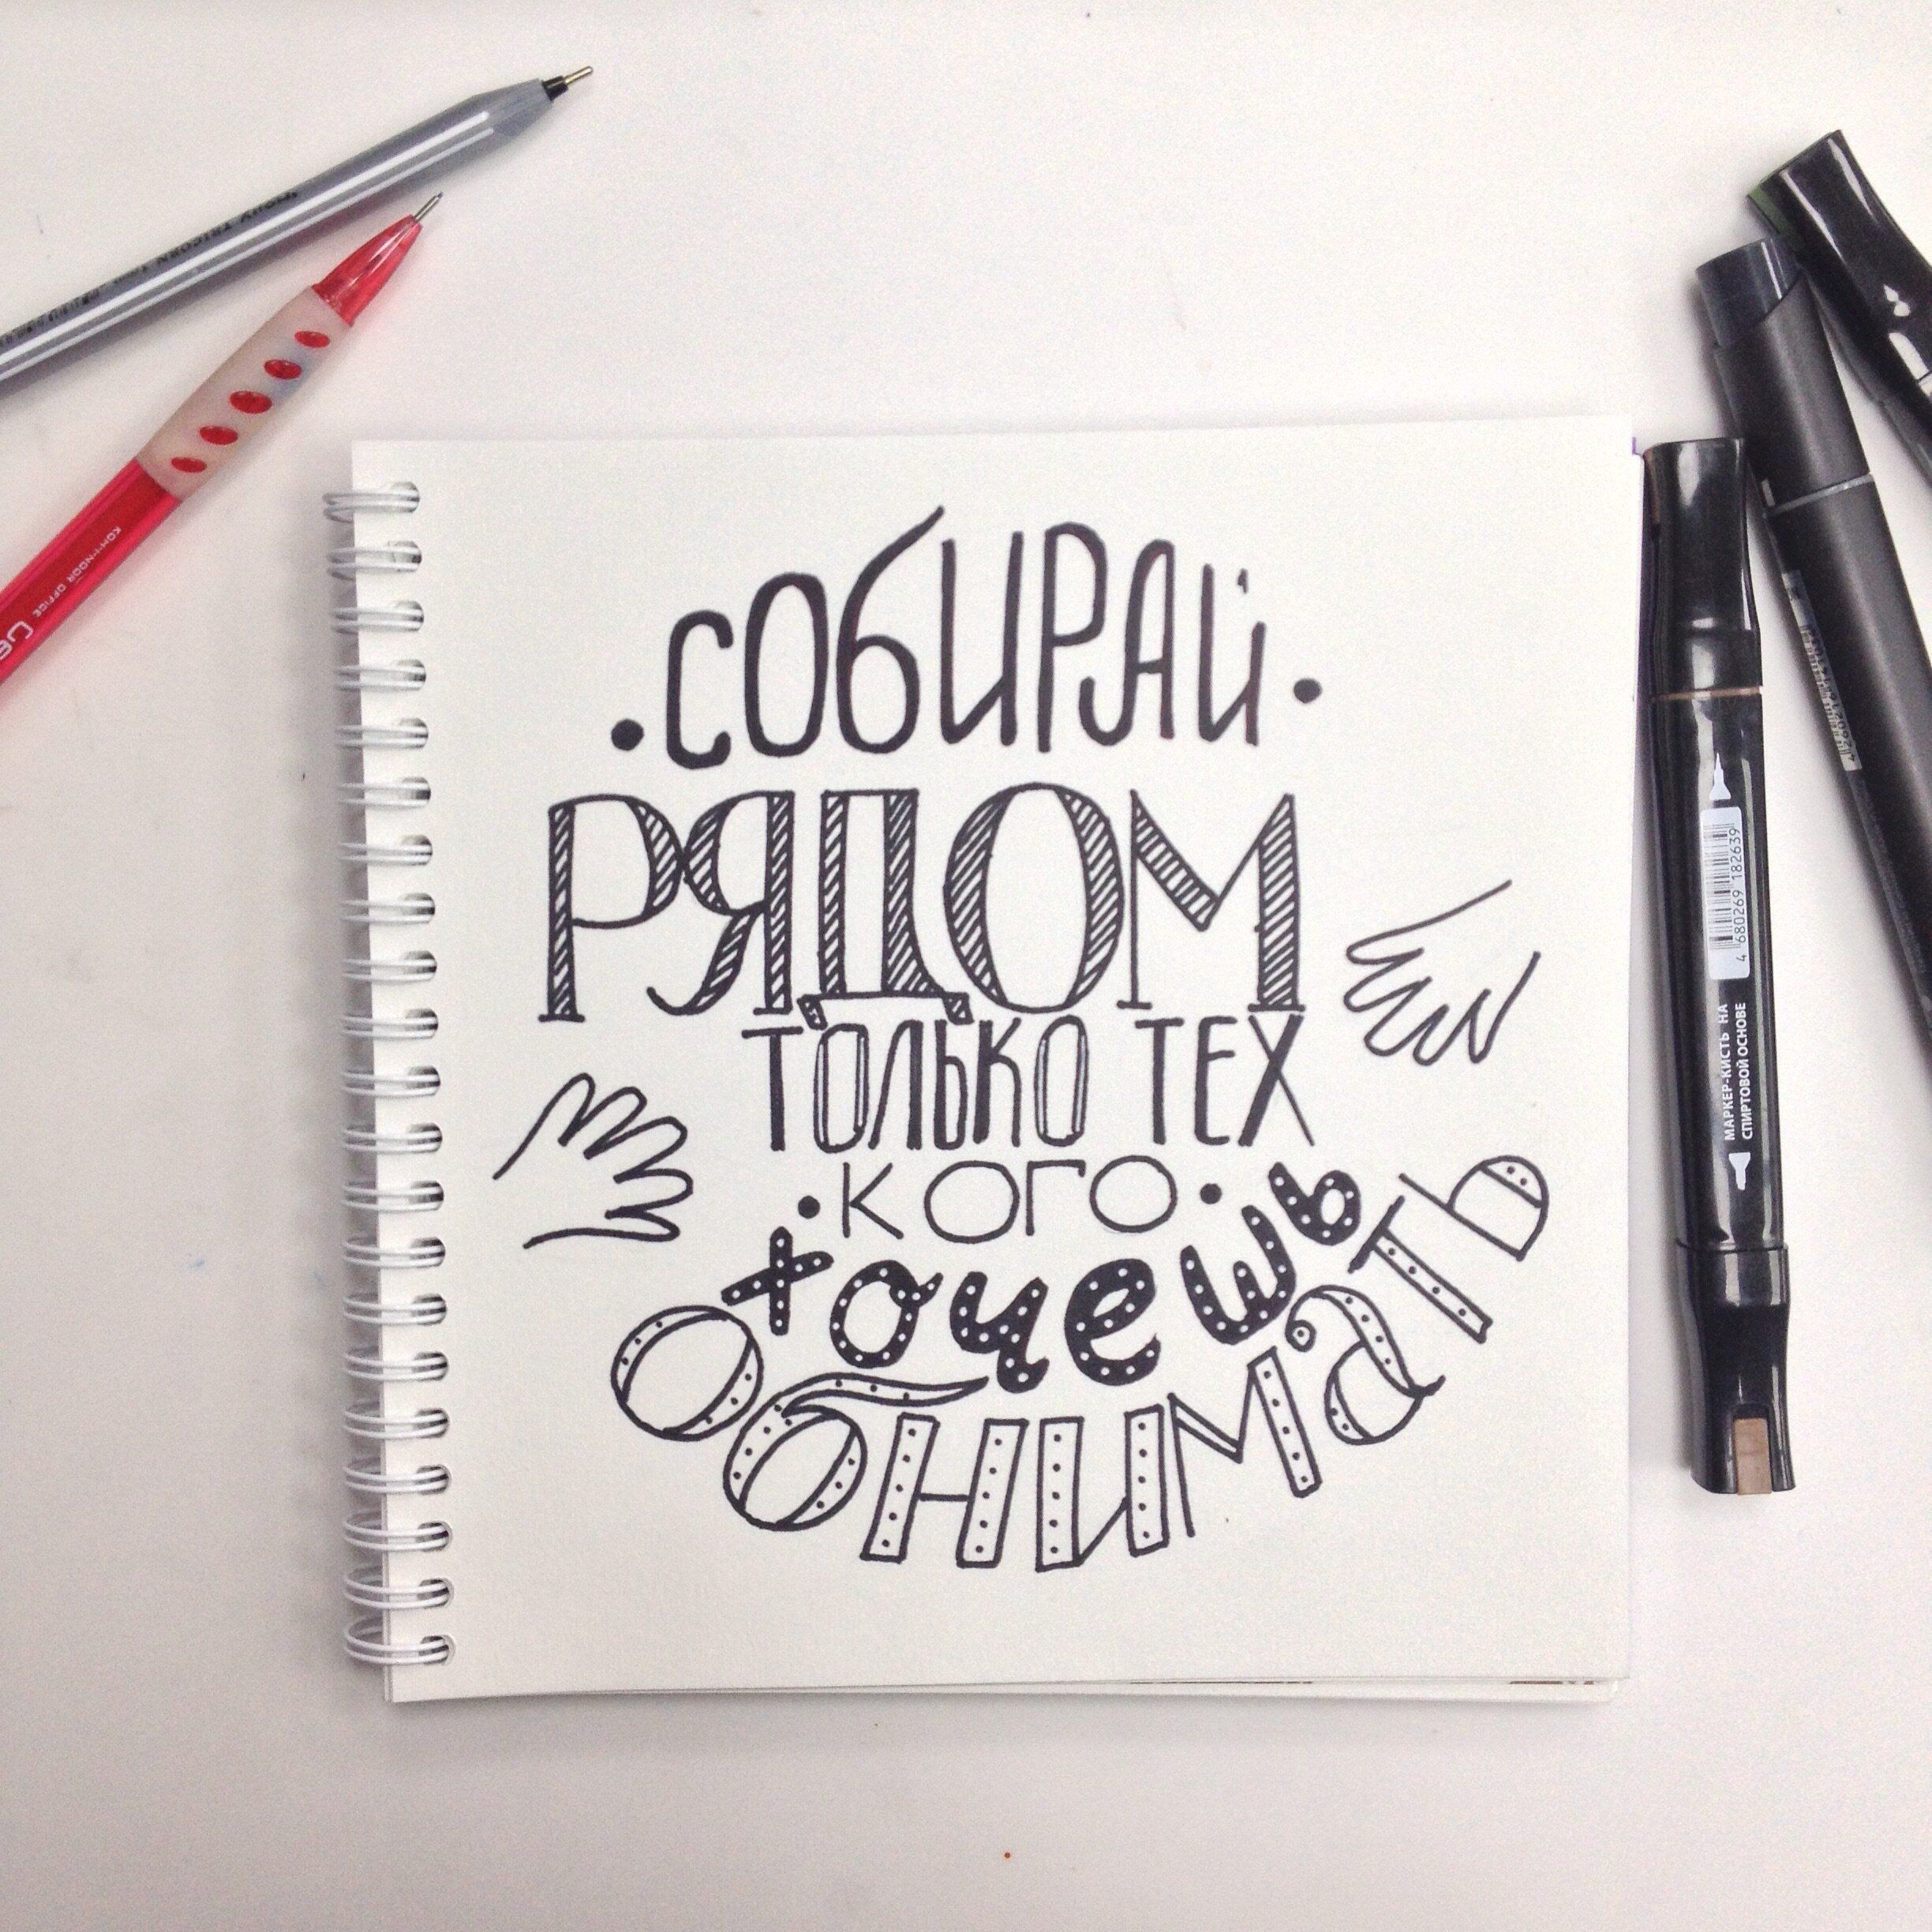 • СОБИРАЙ •
РЯДОМ
ТОЛЬКО ТЕХ
• КОГО •
хочешь
обнимать
TRICORN
KOH-I-NOOR OFFICE
4 680269 182639
МАРКЕР-КИСТЬ НА
СПИРТОВОЙ ОСНОВЕ